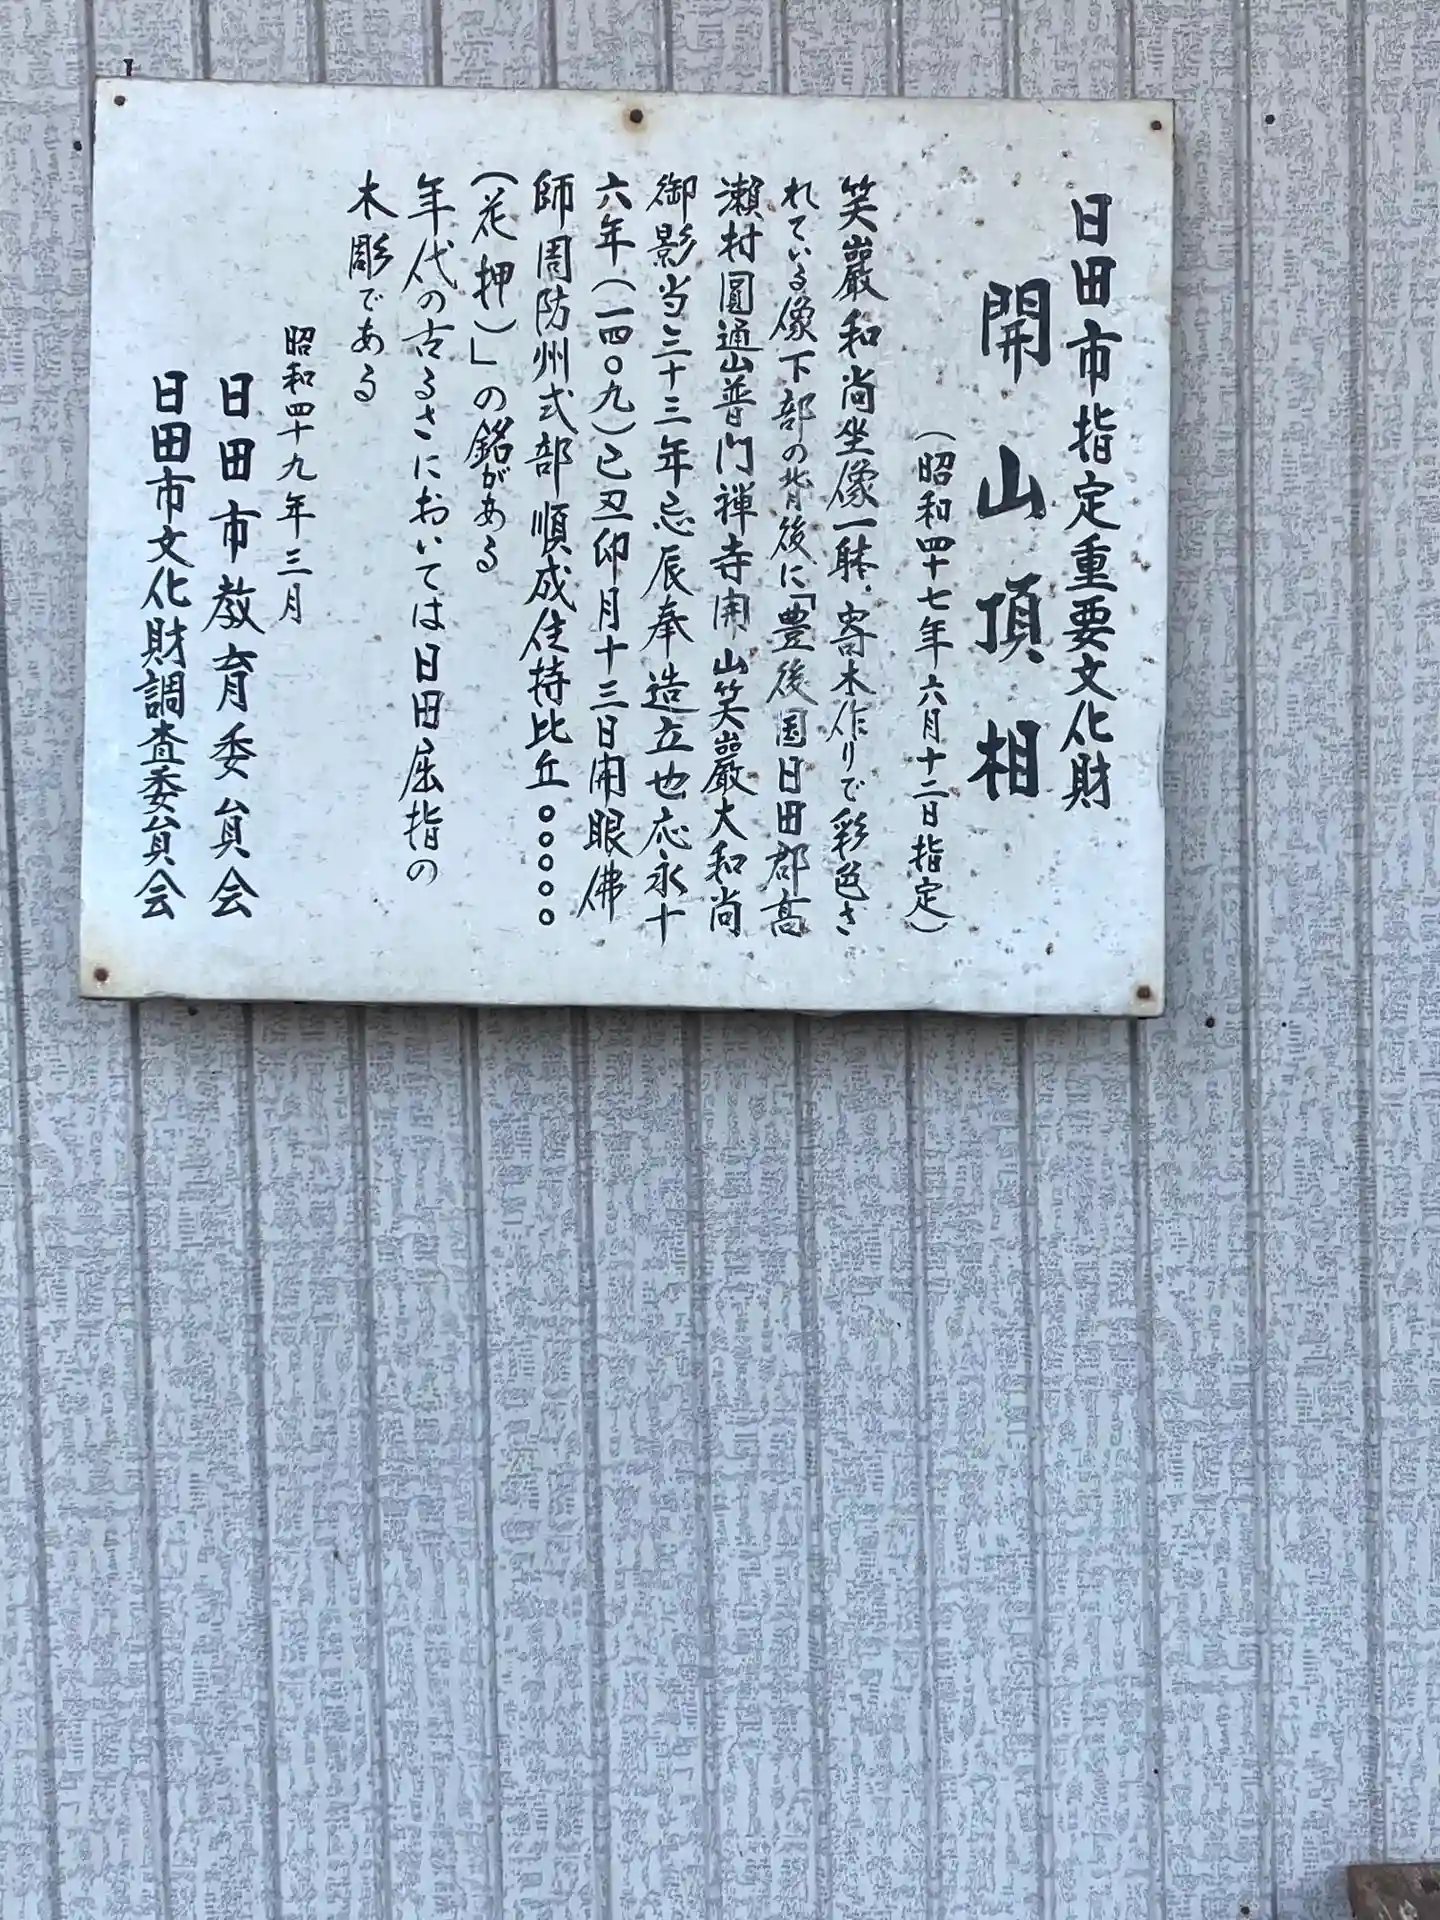 日田市指定重要文化財
開山頂相
（昭和四十七年六月十二日指定）
笑巖和尚坐像一躰．寄木作りで彩色さ
れている像下部の背後に「豊後国日田郡高
瀬村圓通山普門禅寺開山笑巖大和尚
御影当三十三年忌辰奉造立也応永十
六年（一四〇九）己丑卯月十三日開眼佛
師周防州式部順成住持比丘○○○○○
（花押）」の銘がある
年代の古るさにおいては日田屈指の
木彫である
昭和四十九年三月
日田市教育委員会
日田市文化財調査委員会